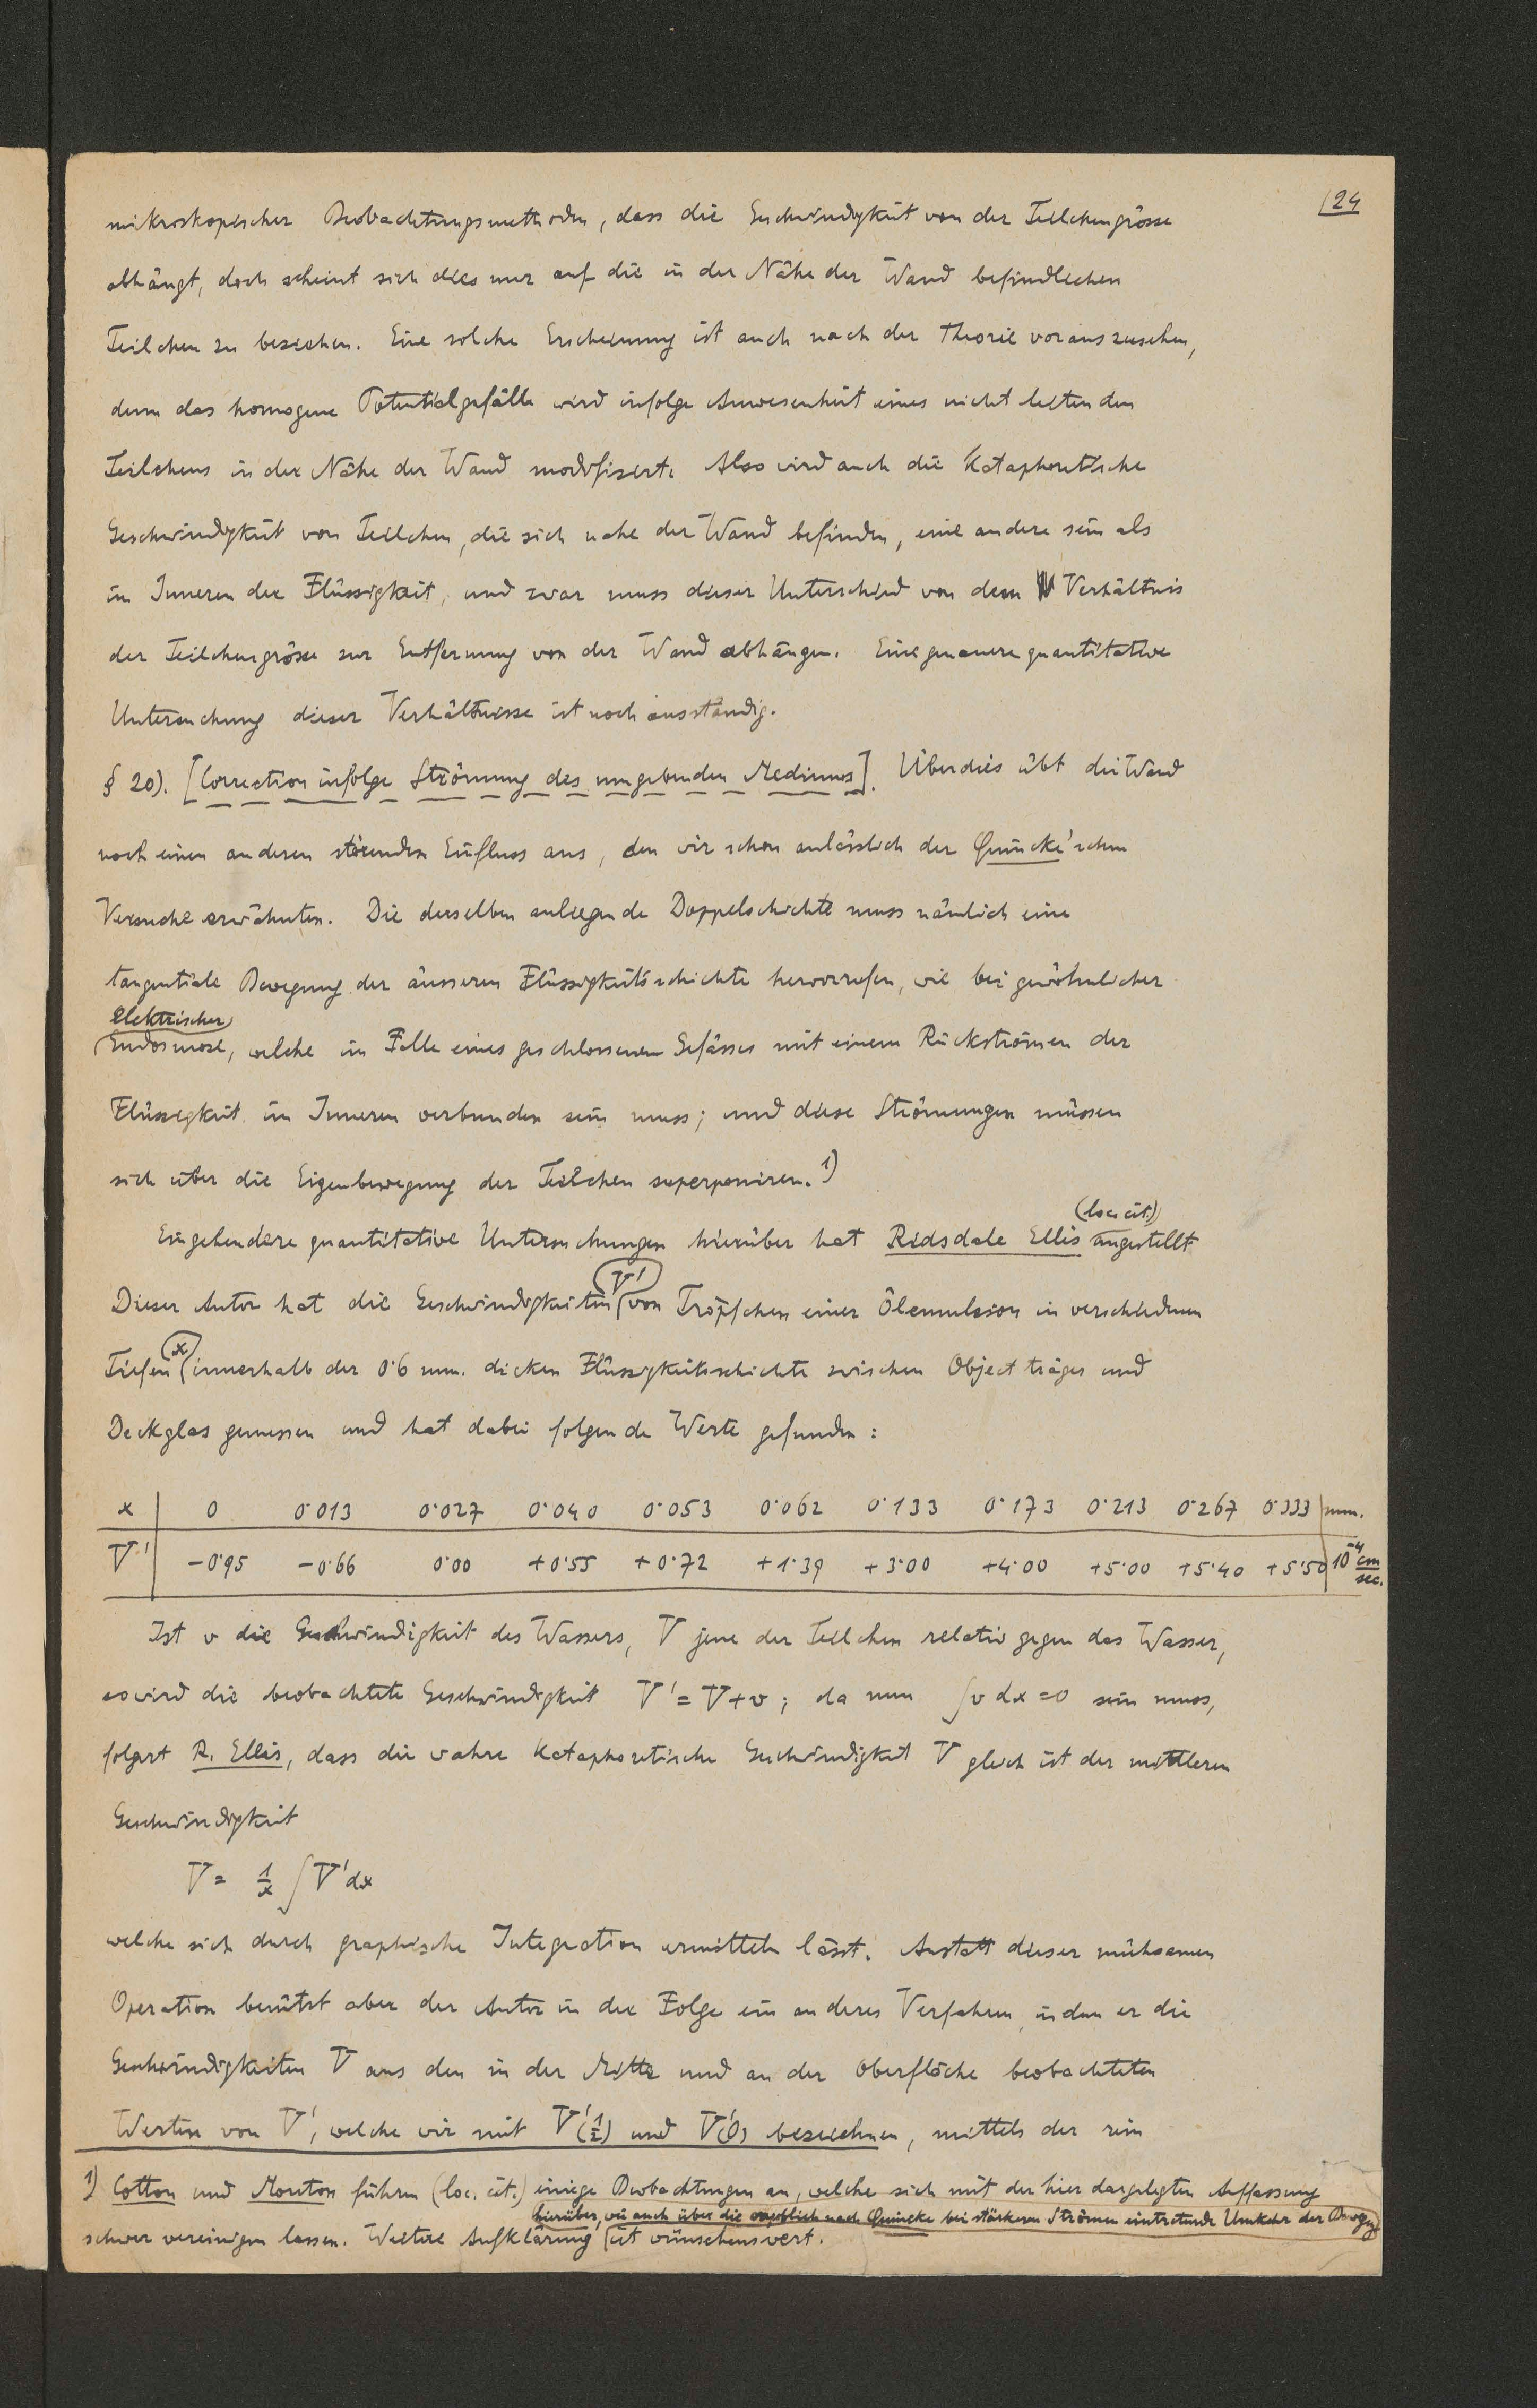 24
mikroskopischer Beobachtungsmethoden, dass die Geschwindigkeit von der Teilchengrösse
abhängt, doch scheint sich dies nur auf die in der Nähe der Wand befindlichen
Teilchen zu beziehen. Eine solche Erscheinung ist auch nach der Theorie vorauszusehen,
denn das homogene Potentialgefälle wird infolge Anwesenheit eines nicht leitenden
Teilchens in der Nähe der Wand modifiziert. Also wird auch die kataphoretische
Geschwindigkeit von Teilchen, die sich nahe der Wand befinden, eine andere sein als
im Inneren der Flüssigkeit, und zwar muss dieser Unterschied von dem Verhältnis
der Teilchengrösse zur Entfernung von der Wand abhängen. Eine genauere quantitative
Untersuchung dieser Verhältnisse ist noch ausständig.
§ 20). [Correction infolge Strömung des umgebenden Mediums]. Überdies übt die Wand
noch einen anderen störenden Einfluss aus, den wir schon anlässlich der Quincke'schen
Versuche erwähnten. Die derselben anliegende Doppelschichte muss nämlich eine
tangentiale Bewegung der äusseren Flüssigkeitsschichte hervorrufen, wie bei gewöhnlicher
elektrischer
Endosmose, welche im Falle eines geschlossenen Gefässes mit einem Rückströmen der
Flüssigkeit im Inneren verbunden sein muss; und diese Strömungen müssen
sich über die Eigenbewegung der Teilchen superponiren. 1)
(loc. cit.)
Eingehendere quantitative Untersuchungen hierüber hat Ridsdale Ellis angestellt
V'
Dieser Autor hat die Geschwindigkeiten von Tröpfchen einer Ölemulsion in verschiedenen
x
Tiefen innerhalb der 0·6 mm. dicken Flüssigkeitsschichte zwischen Objectträger und
Deckglas gemessen und hat dabei folgende Werte gefunden:
x 0 0·013 0·027 0·040 0·053 0·062 0·133 0·173 0·213 0·267 0·333 mm.
V' −0·95 −0·66 0·00 +0·55 +0·72 +1·39 +3·00 +4·00 +5·00 +5·40 +5·50 10⁻⁴ cm/sec.
Ist v die Geschwindigkeit des Wassers, V jene der Teilchen relativ gegen das Wasser,
so wird die beobachtete Geschwindigkeit V' = V + v; da nun ∫v dx = 0 sein muss,
folgert R. Ellis, dass die wahre kataphoretische Geschwindigkeit V gleich ist der mittleren
Geschwindigkeit
V = 1/x ∫V'dx
welche sich durch graphische Integration ermitteln lässt. Anstatt dieser mühsamen
Operation benützt aber der Autor in der Folge ein anderes Verfahren, indem er die
Geschwindigkeiten V aus den in der Mitte und an der Oberfläche beobachteten
Werten von V', welche wir mit V'(1/2) und V'(0) bezeichnen, mittels der rein
1) Cotton und Mouton führen (loc. cit.) einige Beobachtungen an, welche sich mit der hier dargelegten Auffassung
hierüber, wie auch über die angeblich nach Quincke bei stärkeren Strömen eintretende Umkehr der Bewegung
schwer vereinigen lassen. Weitere Aufklärung ist wünschenswert.